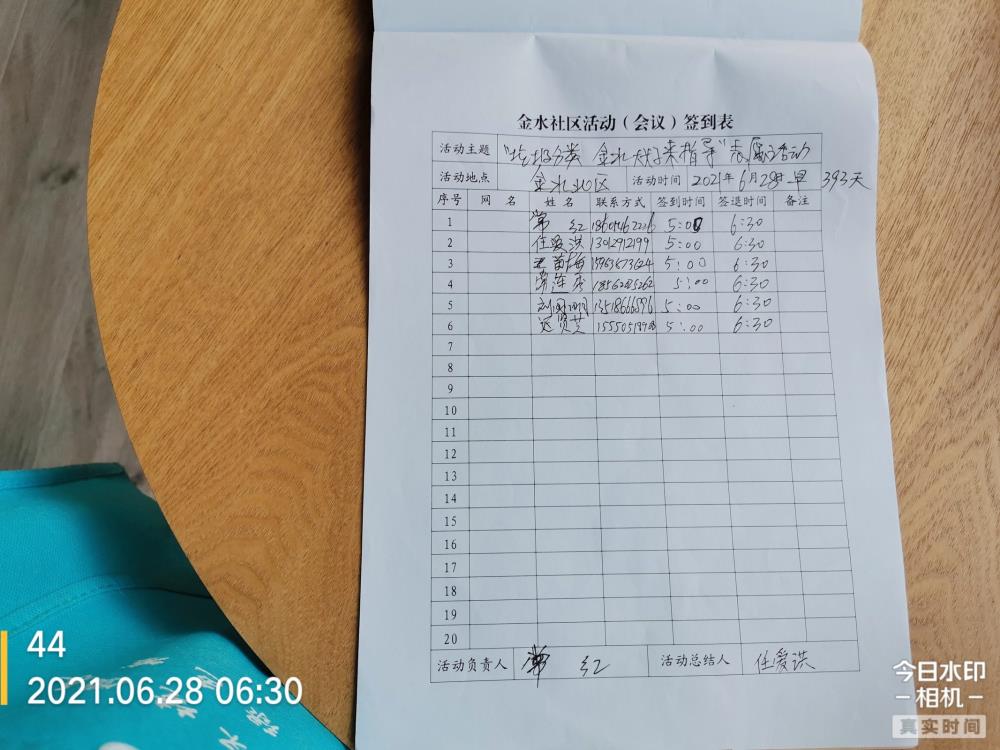 金水社区活动（会议）签到表
活动主题 "垃圾分类 金水大好来指导"志愿活动
活动地点 金水北区 活动时间 2021年6月28日 早 393天
序号 网名 姓名 联系方式 签到时间 签退时间 备注
1 常红 5:00 6:30
2 任爱洪 13012912199 5:00 6:30
3 5:00 6:30
4 常连 5:00 6:30
5 刘 5:00 6:30
6 5:00 6:30
7
8
9
10
11
12
13
14
15
16
17
18
19
20
活动负责人 常红 活动总结人 任爱洪
44
2021.06.28 06:30
今日水印
相机
真实时间